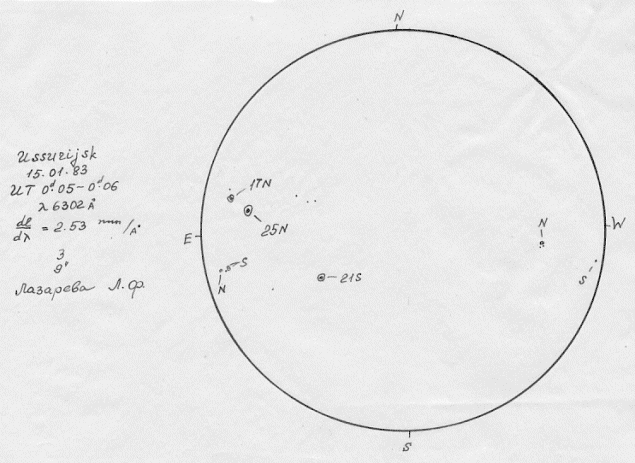 N
Ussurijsk
15.01.83
UT 0ᵈ.05-0ᵈ.06
λ 6302 Å
dl/dλ = 2.53 mm/Å
3
9"
Лазарева Л.Ф.
17N
25N
E
W
N
S
N
21S
S
S